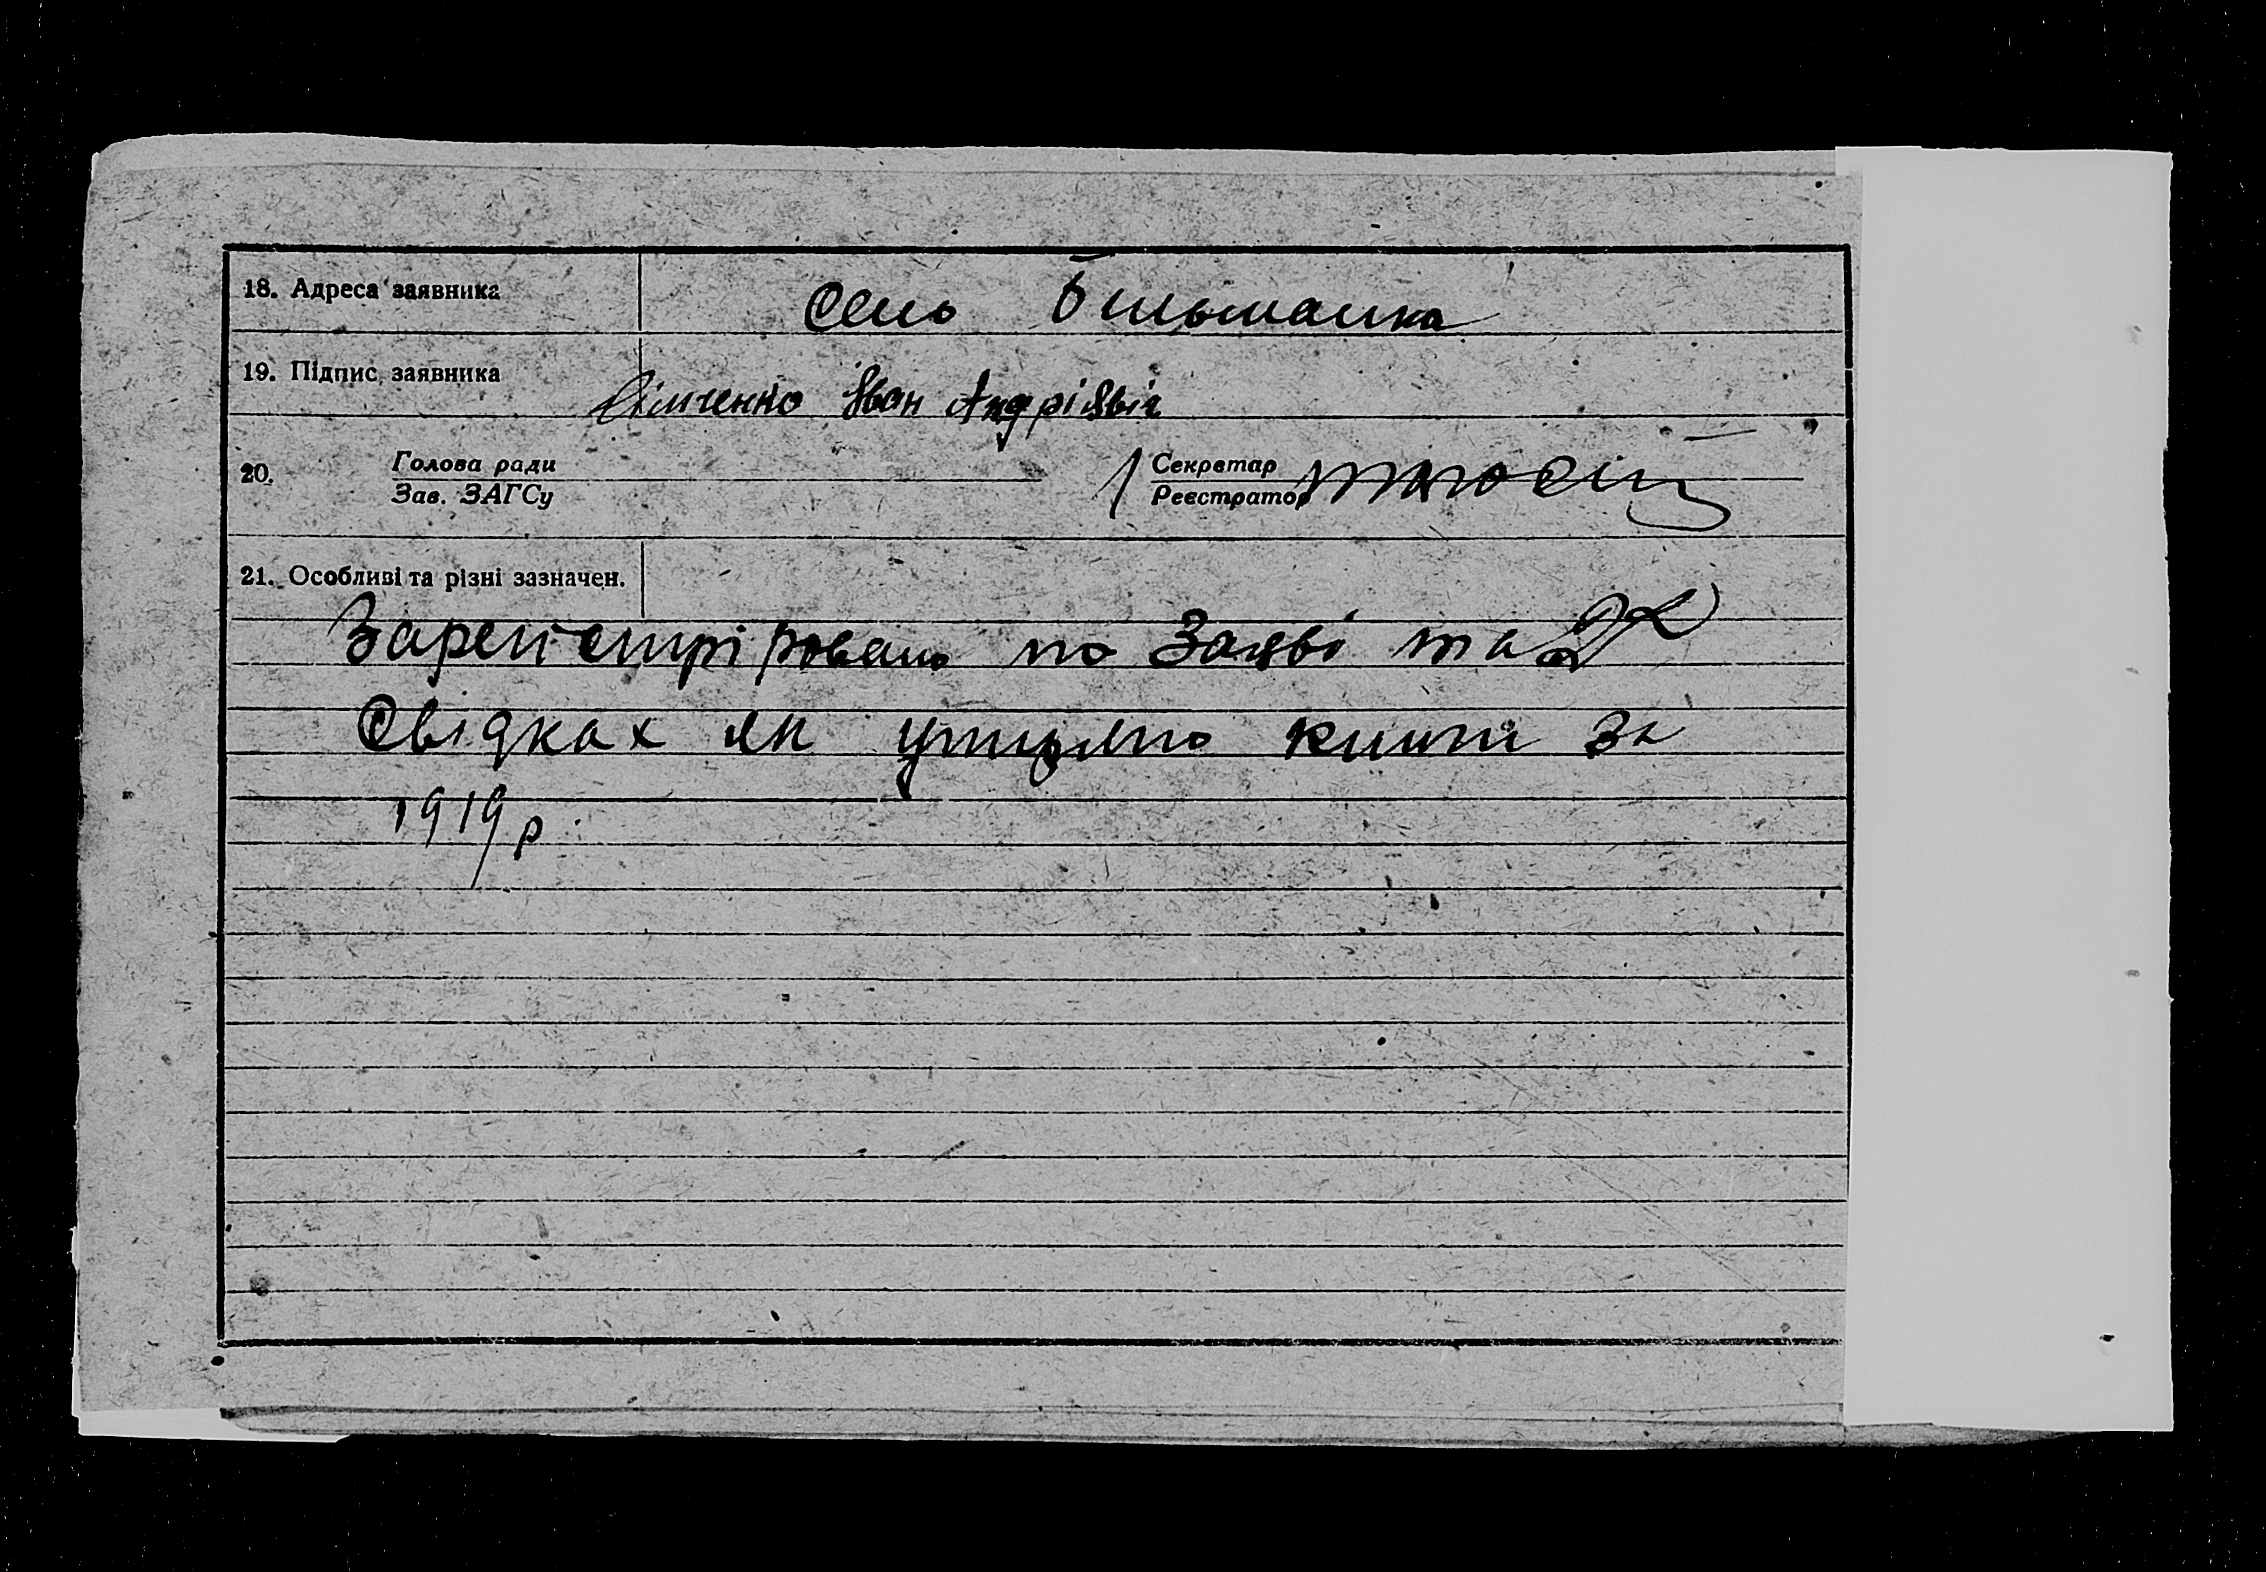 18. Адреса заявника село Більшанка
19. Підпис заявника Іван Андрієвіч
20. Голова ради Секретар
Зав. ЗАГСу Реєстратор
21. Особливі та різні зазначен.
Зарегестріровано по Заяві та
Свідках як книги за
1919 р.